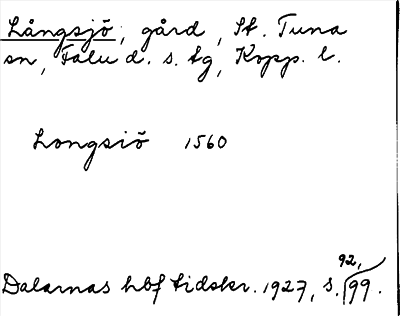 Långsjö, gård, St. Tuna
sn, Falu d. s. tg, Kopp. l.
Longsiö 1560
Dalarnas hbf tidskr. 1927, s. 92, 99.